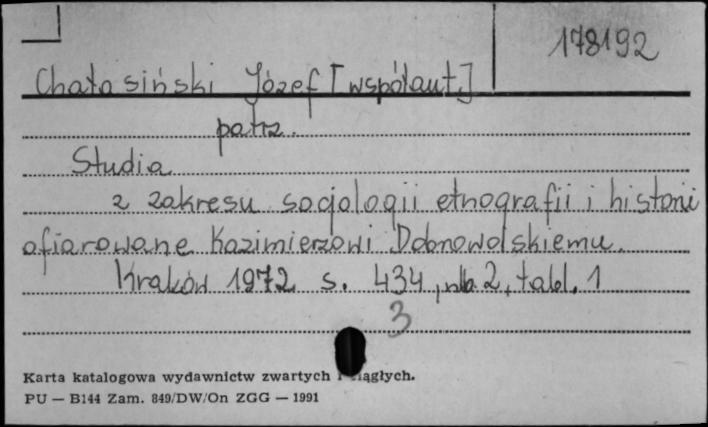 178192
Chałasiński Józef [współaut.]
patrz.
Studia
z zakresu socjologii etnografii i historii
ofiarowane Kazimierzowi Dobrowolskiemu.
Kraków 1972 s. 434, nlb 2, tabl. 1
3
Karta katalogowa wydawnictw zwartych i ciągłych.
PU — B144 Zam. 849/DW/On ZGG — 1991